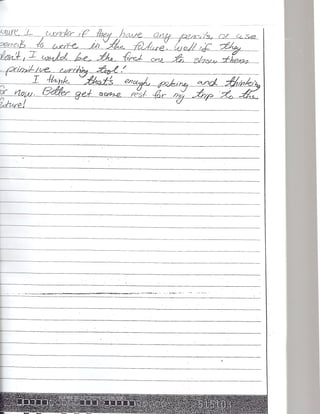 sure I wonder if they have any pencils, or use
pencils to write in the future. well if they
don't, I would be the first one to show them
primitive writing tool!
I think that's enough poking and thinking
for now. Better get some rest for my trip to the
future!